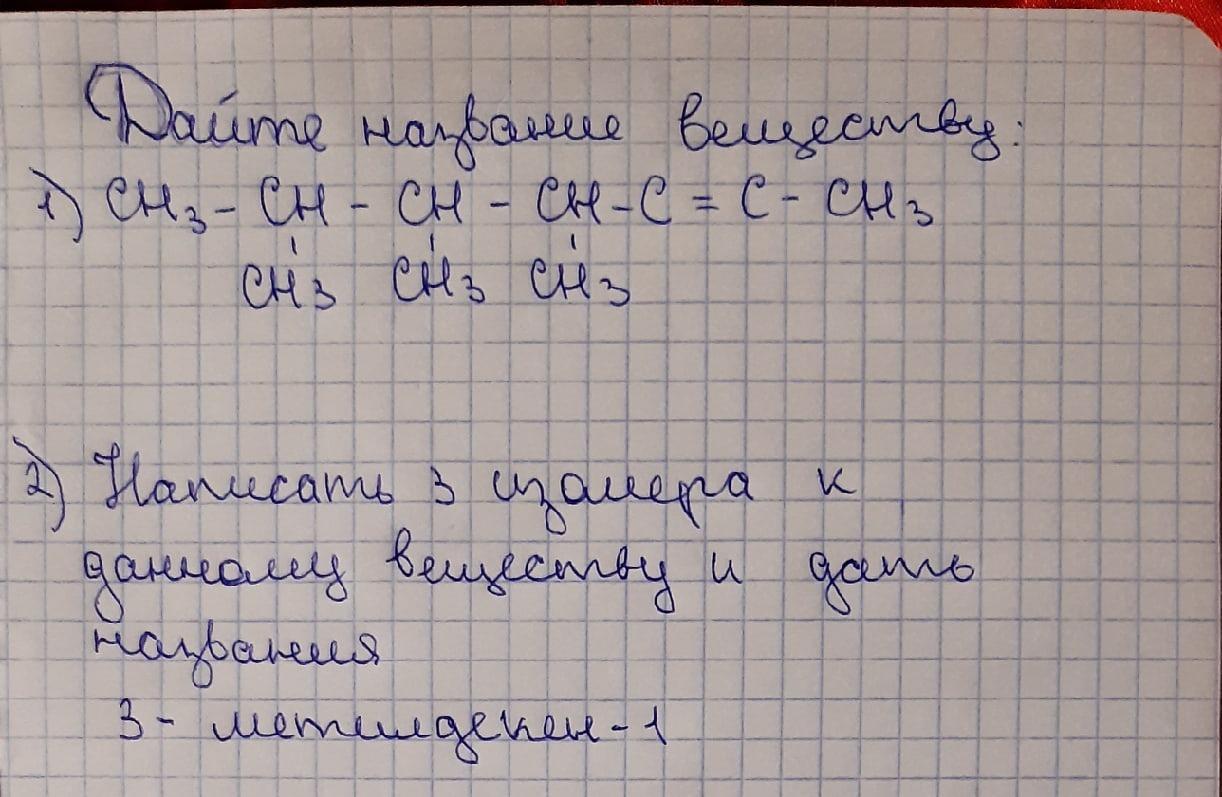 Дайте название веществу:
1) CH₃ - CH - CH - CH - C = C - CH₃
CH₃ CH₃ CH₃
2) Написать 3 изомера к
данному веществу и дать
названия
3 - метилдекен - 1